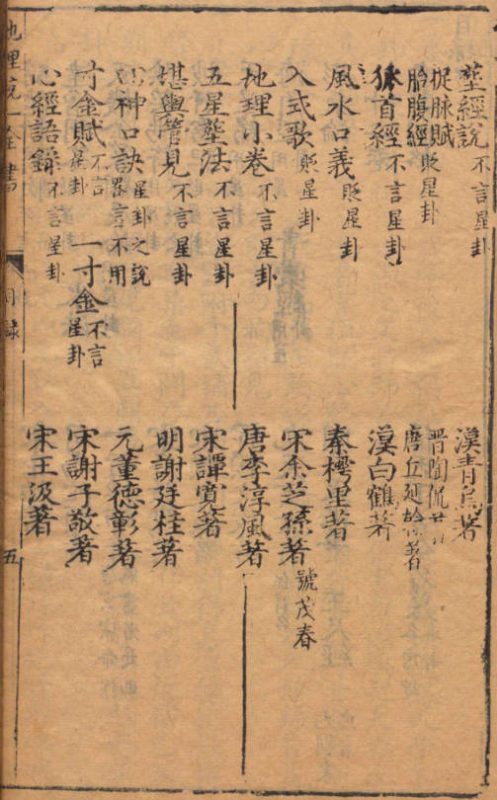 塟經說 不言星卦 漢青烏著
捉脉賦 晋陶侃
胎腹經 貶星卦 唐丘延翰著
狐首經 不言星卦 漢白鶴著
風水口義 貶星卦 秦樗里著
入式歌 貶星卦 宋余芝孫著 號茂春
地理小卷 不言星卦 唐李淳風著
五星塟法 不言星卦 宋譚寬著
堪輿管見 不言星卦 明謝廷柱著
神口訣 星卦之說 畧言不用 元董德彰著
寸金賦 不言星卦 一寸金 不言星卦 宋謝子敬著
心經語錄 不言星卦 宋王汲著
地理統一全書 目錄 五